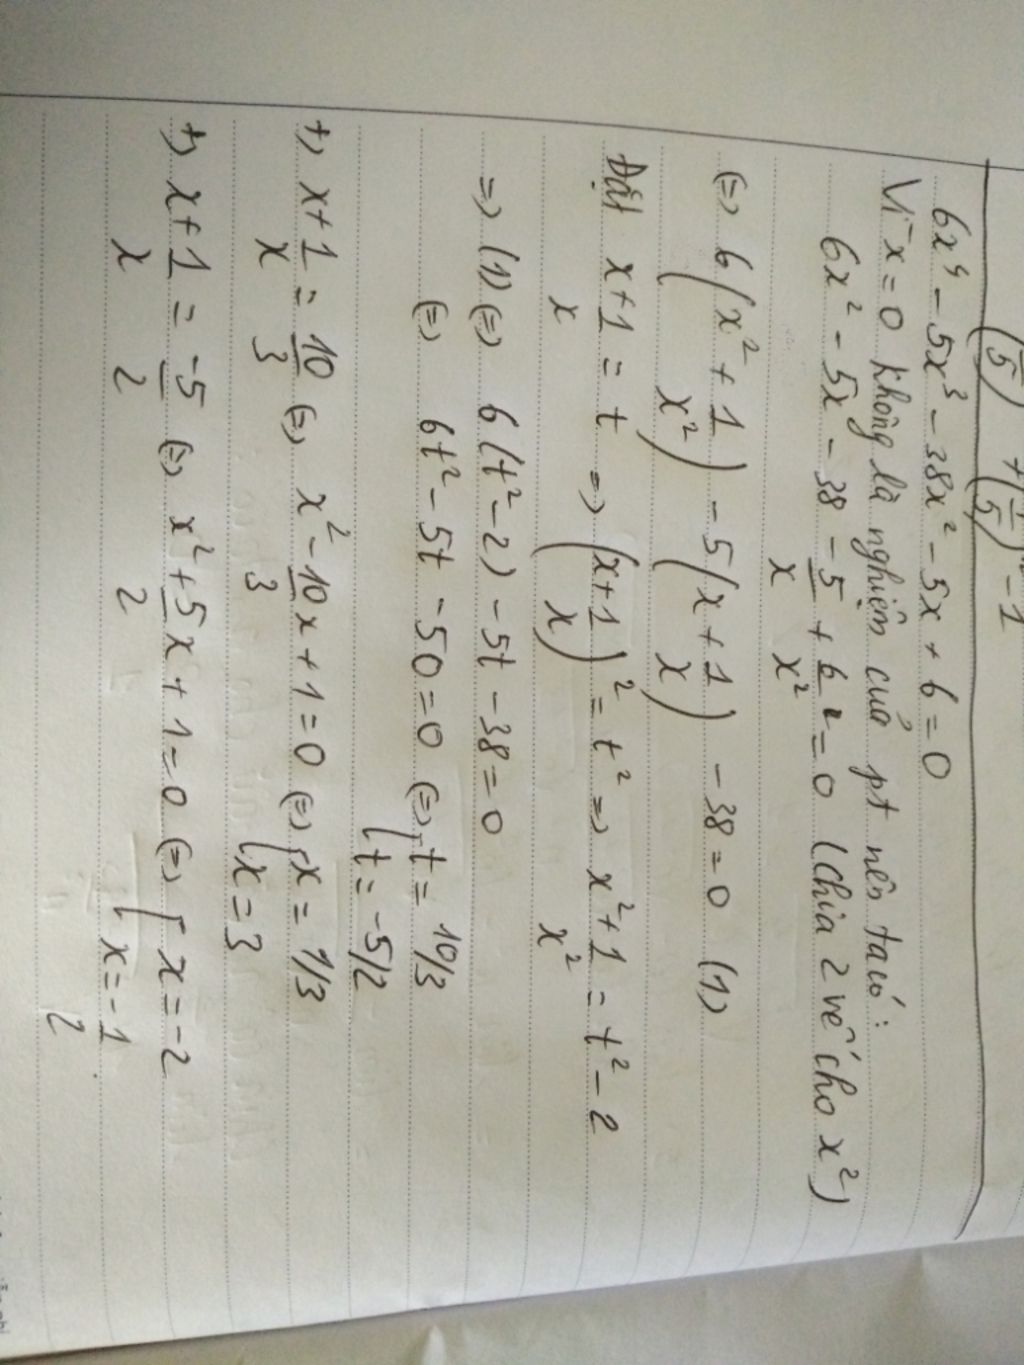 (5) + (5) - 1
6x⁴ - 5x³ - 38x² - 5x + 6 = 0
Vì x = 0 không là nghiệm của pt nên ta có:
6x² - 5x - 38 - 5/x + 6/x² = 0 (chia 2 vế cho x²)
(=) 6(x² + 1/x²) - 5(x + 1/x) - 38 = 0 (1)
Đặt x + 1/x = t => (x + 1/x)² = t² => x² + 1/x² = t² - 2
=> (1) (=) 6(t² - 2) - 5t - 38 = 0
(=) 6t² - 5t - 50 = 0 (=) [t = 10/3
[t = -5/2
+) x + 1/x = 10/3 (=) x² - 10/3 x + 1 = 0 (=) [x = 1/3
[x = 3
+) x + 1/x = -5/2 (=) x² + 5/2 x + 1 = 0 (=) [x = -2
[x = -1/2